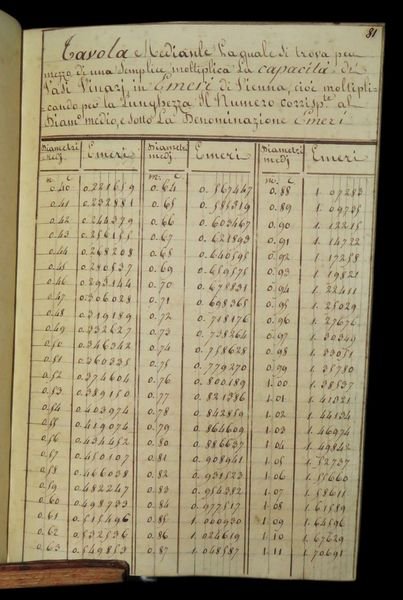 81
Tavola Mediante la quale si trova per
mezzo di una semplice moltiplica La capacità de'
Vasi Vinarj, in Emeri di Vienna, cioè moltipli-
cando per la Lunghezza Il Numero corrisp.te al
Diam.o medio, e sotto La Denominazione Emeri
Diametri medj Emeri Diametri medj Emeri Diametri medj Emeri
m. c m. c m. c
0.40 0.221659 0.64 0.567447 0.88 1.07283
0.41 0.232881 0.65 0.585319 0.89 1.09735
0.42 0.244379 0.66 0.603467 0.90 1.12215
0.43 0.256155 0.67 0.621893 0.91 1.14722
0.44 0.268208 0.68 0.640595 0.92 1.17258
0.45 0.280537 0.69 0.659575 0.93 1.19821
0.46 0.293144 0.70 0.678831 0.94 1.22411
0.47 0.306028 0.71 0.698365 0.95 1.25029
0.48 0.319189 0.72 0.718176 0.96 1.27676
0.49 0.332627 0.73 0.738264 0.97 1.30349
0.50 0.346342 0.74 0.758628 0.98 1.33051
0.51 0.360335 0.75 0.779270 0.99 1.35780
0.52 0.374604 0.76 0.800189 1.00 1.38537
0.53 0.389150 0.77 0.821386 1.01 1.41321
0.54 0.403974 0.78 0.842859 1.02 1.44134
0.55 0.419076 0.79 0.864609 1.03 1.46974
0.56 0.434452 0.80 0.886637 1.04 1.49842
0.57 0.450107 0.81 0.908941 1.05 1.52737
0.58 0.466038 0.82 0.931523 1.06 1.55660
0.59 0.482247 0.83 0.954382 1.07 1.58611
0.60 0.498733 0.84 0.977517 1.08 1.61589
0.61 0.515496 0.85 1.000930 1.09 1.64596
0.62 0.532536 0.86 1.024619 1.10 1.67629
0.63 0.549853 0.87 1.048587 1.11 1.70691